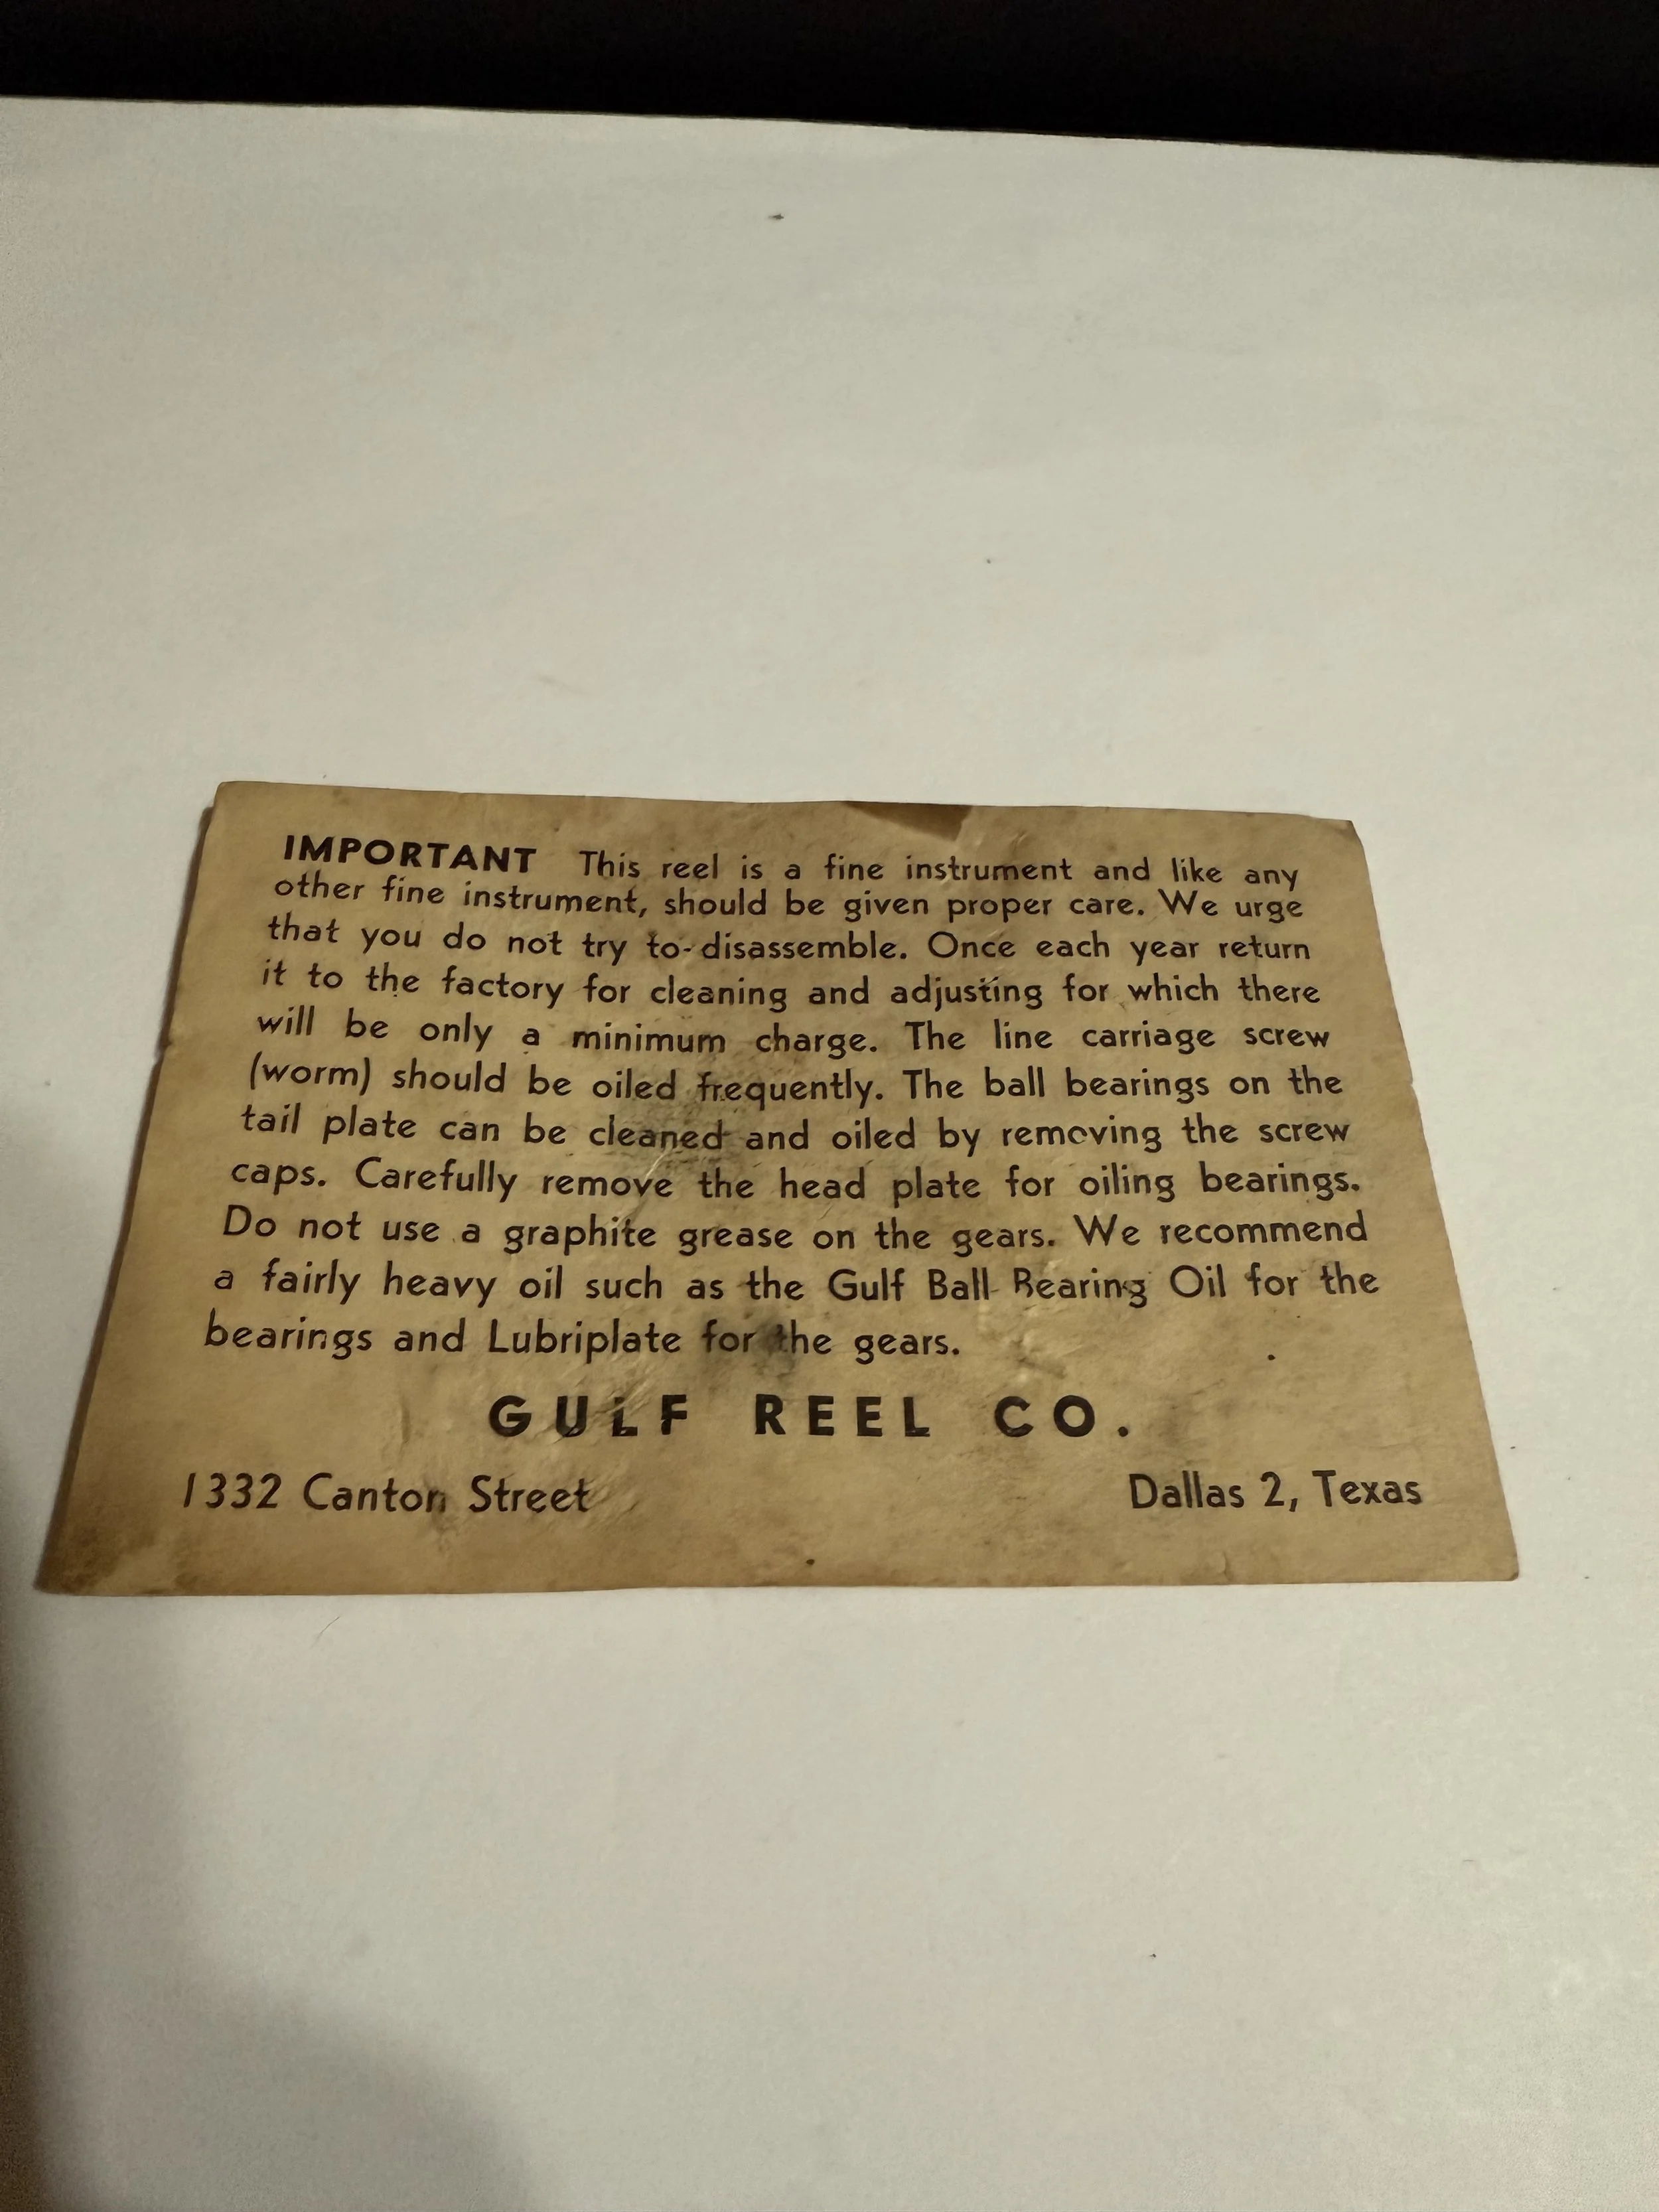 IMPORTANT This reel is a fine instrument and like any
other fine instrument, should be given proper care. We urge
that you do not try to disassemble. Once each year return
it to the factory for cleaning and adjusting for which there
will be only a minimum charge. The line carriage screw
(worm) should be oiled frequently. The ball bearings on the
tail plate can be cleaned and oiled by removing the screw
caps. Carefully remove the head plate for oiling bearings.
Do not use a graphite grease on the gears. We recommend
a fairly heavy oil such as the Gulf Ball Bearing Oil for the
bearings and Lubriplate for the gears.
GULF REEL CO.
1332 Canton Street Dallas 2, Texas